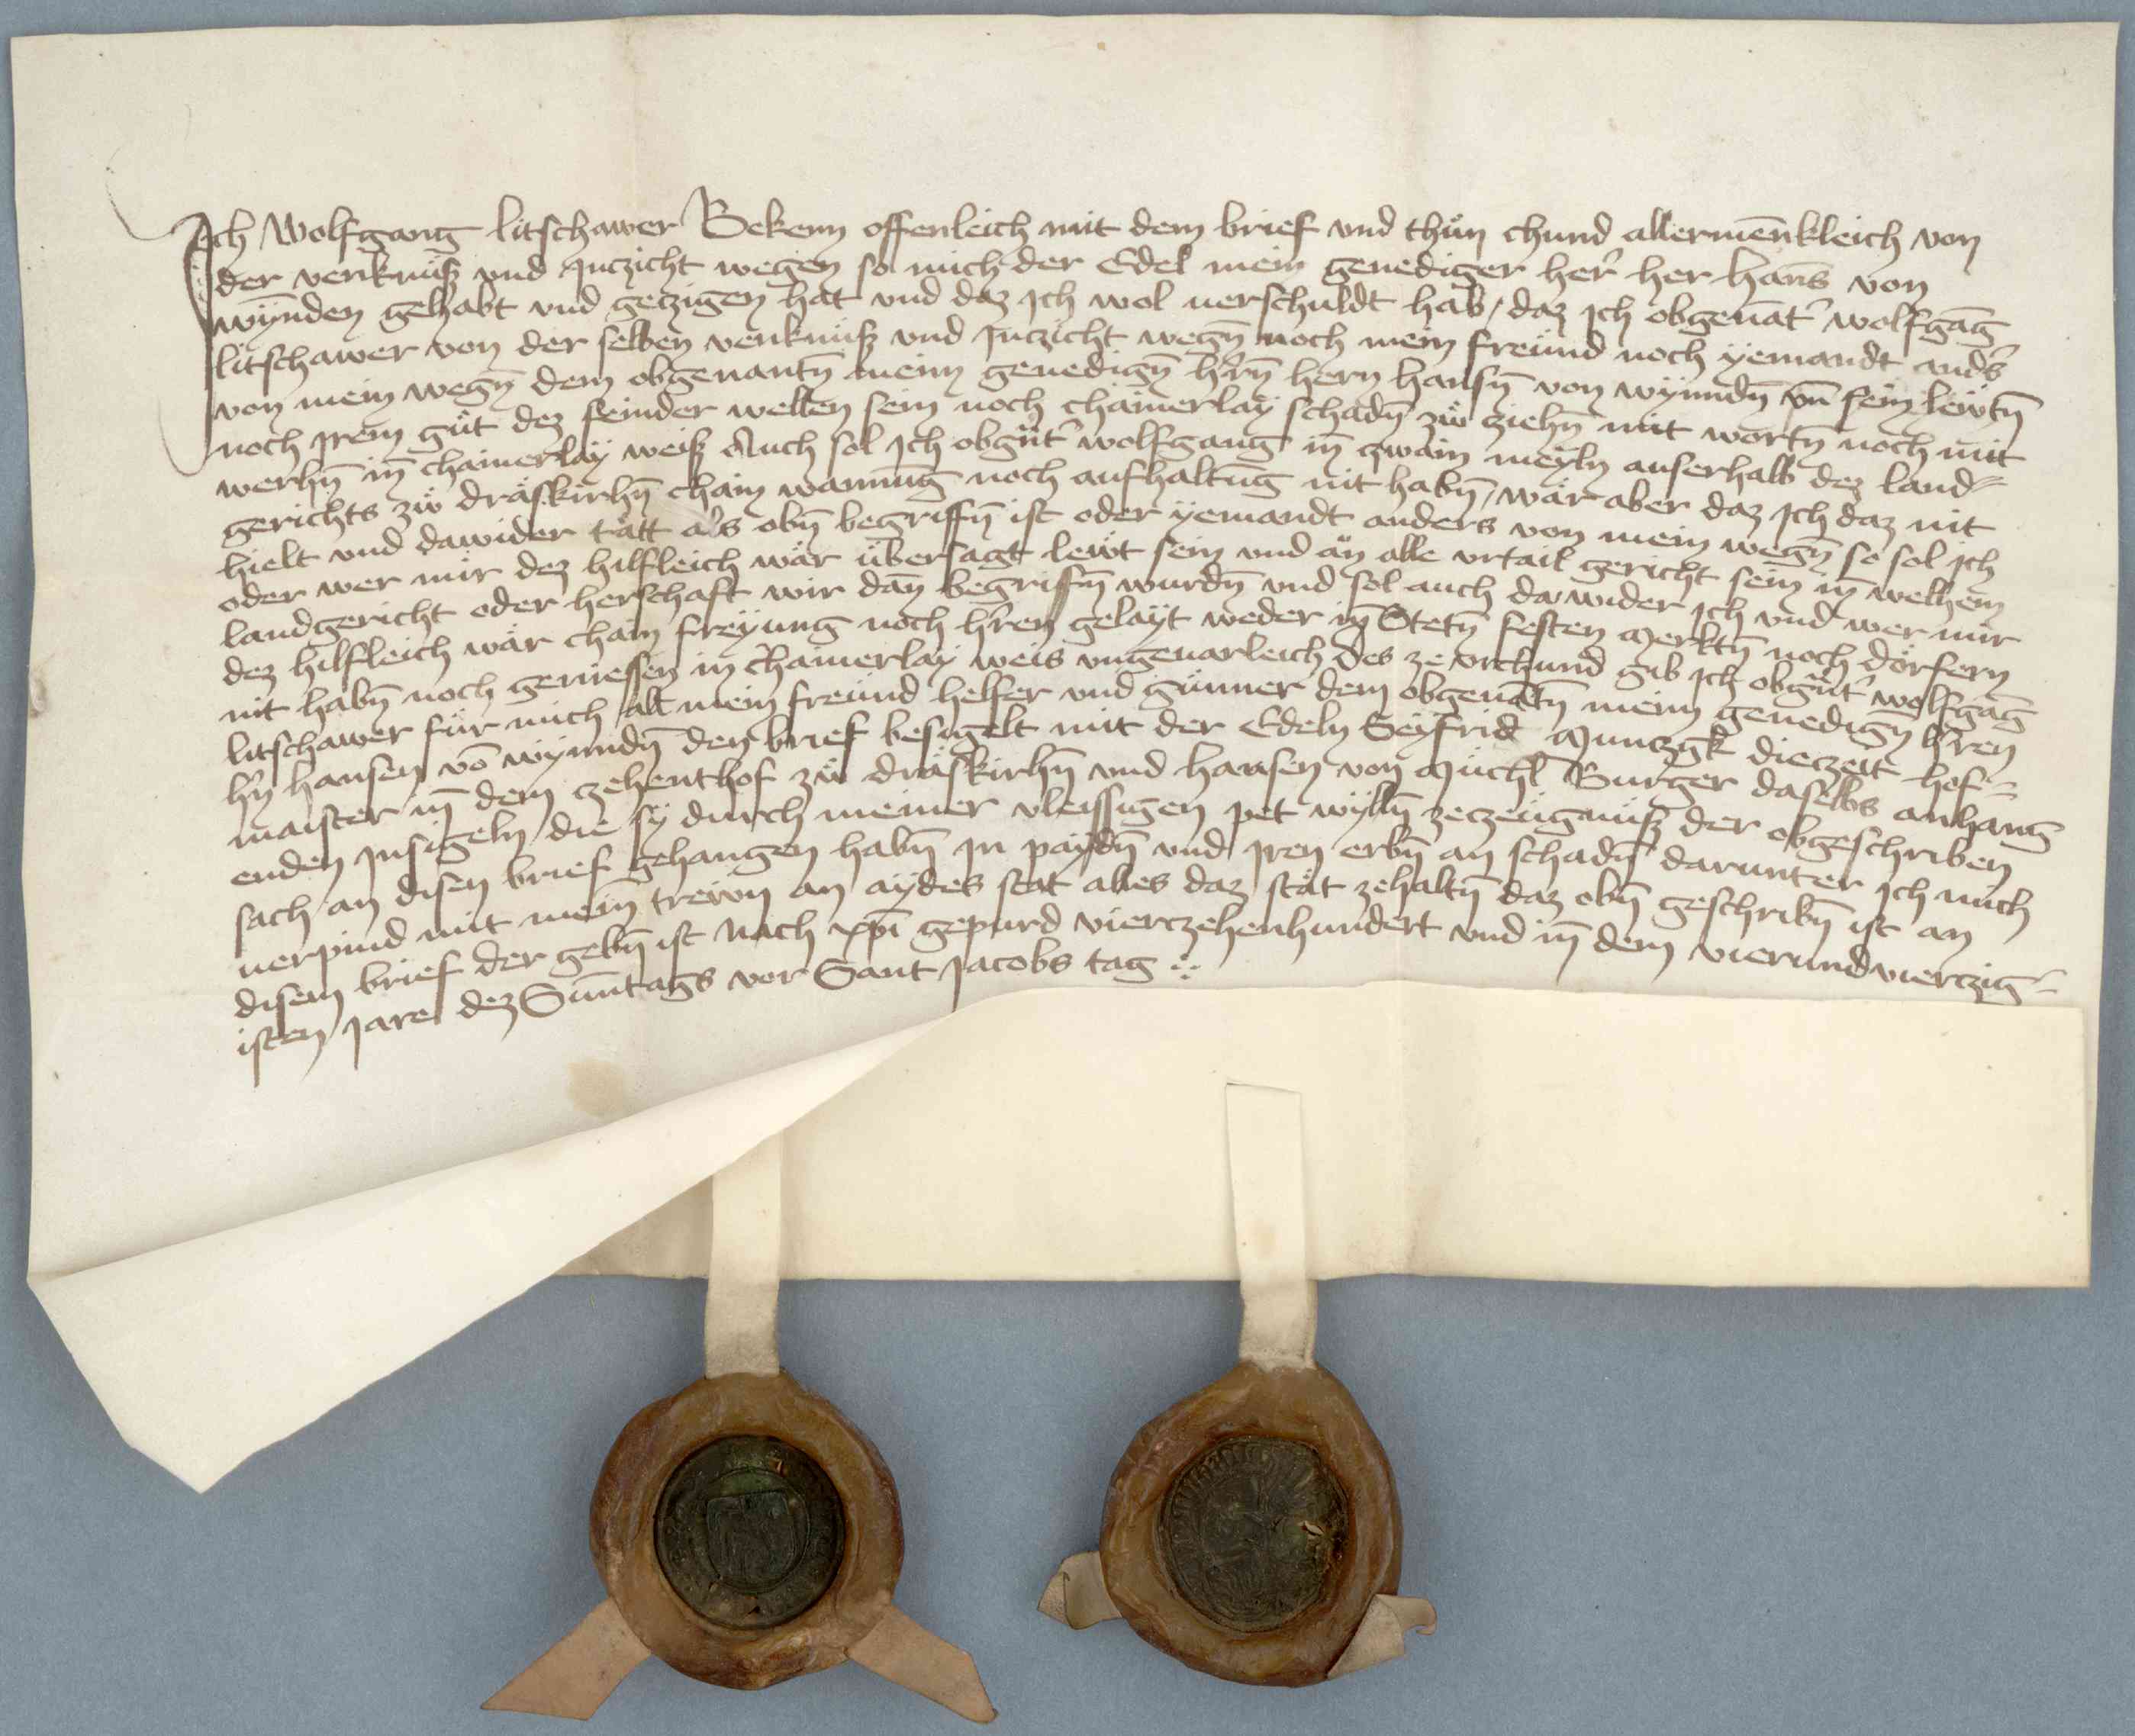 Ich Wolfgang litschawer Bekenn offenleich mit dem brief vnd thůn chund allermēnkleich von
der venknüsz vnd Inczicht wegen so mich der Edel mein genediger her̄ her Hanns von
wynnden gehabt vnd getzigen hat vnd daz Ich wol uerschuldt hab / daz Ich obgenāt̄ wolfgāg
litschawer von der selben venknüsz vnd Inczicht wegn̄ noch mein freünd noch yemandt and̄s
von mein wegn̄ dem obgenantn̄ meinn genedign̄ hr̄n̄ hern hansn̄ von wynndn̄ vn̄ sein lewtn̄
noch Irem gůt dez feinder wellen sein noch chainerlay schadn̄ zů ziehn̄ mit wortn̄ noch mit
werhn̄ in̄ chainerlay weis Auch sol Ich obgn̄t̄ wolfgang in̄ zwain meyln auserhalb dez land=
gerichts zů dräskirhn̄ chain wannūg noch aufhaltūg nit habn̄ / wär aber daz Ich daz nit
hielt vnd dawider tätt als obn̄ begriffn̄ ist oder yemandt anders von mein wegn̄ so sol Ich
oder wer mir dez hilfleich wär übersagt lewt sein vnd än alle vrtail gericht sein in̄ welhem
landgericht oder herschaft wir dan̄ begriffn̄ wurdn̄ vnd sol auch dawider Ich vnd wer mir
dez hilfleich wär chain freyung noch hr̄en gelayt weder in̄ Stetn̄ festen Merktn̄ noch dörfern
nit habn̄ noch geniessen in chainerlay weis vngeuarleich des ze vrchund gib Ich obgn̄t̄ wolfgāg
litschawer für mich / all mein freünd helfer vnd günner dem obgenātn̄ meinn genedign̄ hr̄en
hr̄n hansen vō wynndn̄ den brief besigelt mit der Edeln Seyfrid Munczgk dieczeit hof=
maister in̄ dem zehenthof zů dräskirhn̄ vnd hansen von Müchl Burger daselbs anhang
enden Insigeln die sy durch meiner vleissigen pet wylln̄ zeczeügnüsz der obgeschriben
sach an disen brief gehangen habn̄ In paydn̄ vnd Iren erbn̄ an schadn̄ darunter Ich mich
uerpind mit mein̄ trewn an aydes stat alles daz stät zehaltn̄ daz obn̄ geschribn̄ ist an
disem brief der gebn̄ ist Nach xp̄i gepurd vierczehenhundert vnd in̄ dem vierundvierczig=
isten Jare dez Sunntags vor Sant Jacobs tag